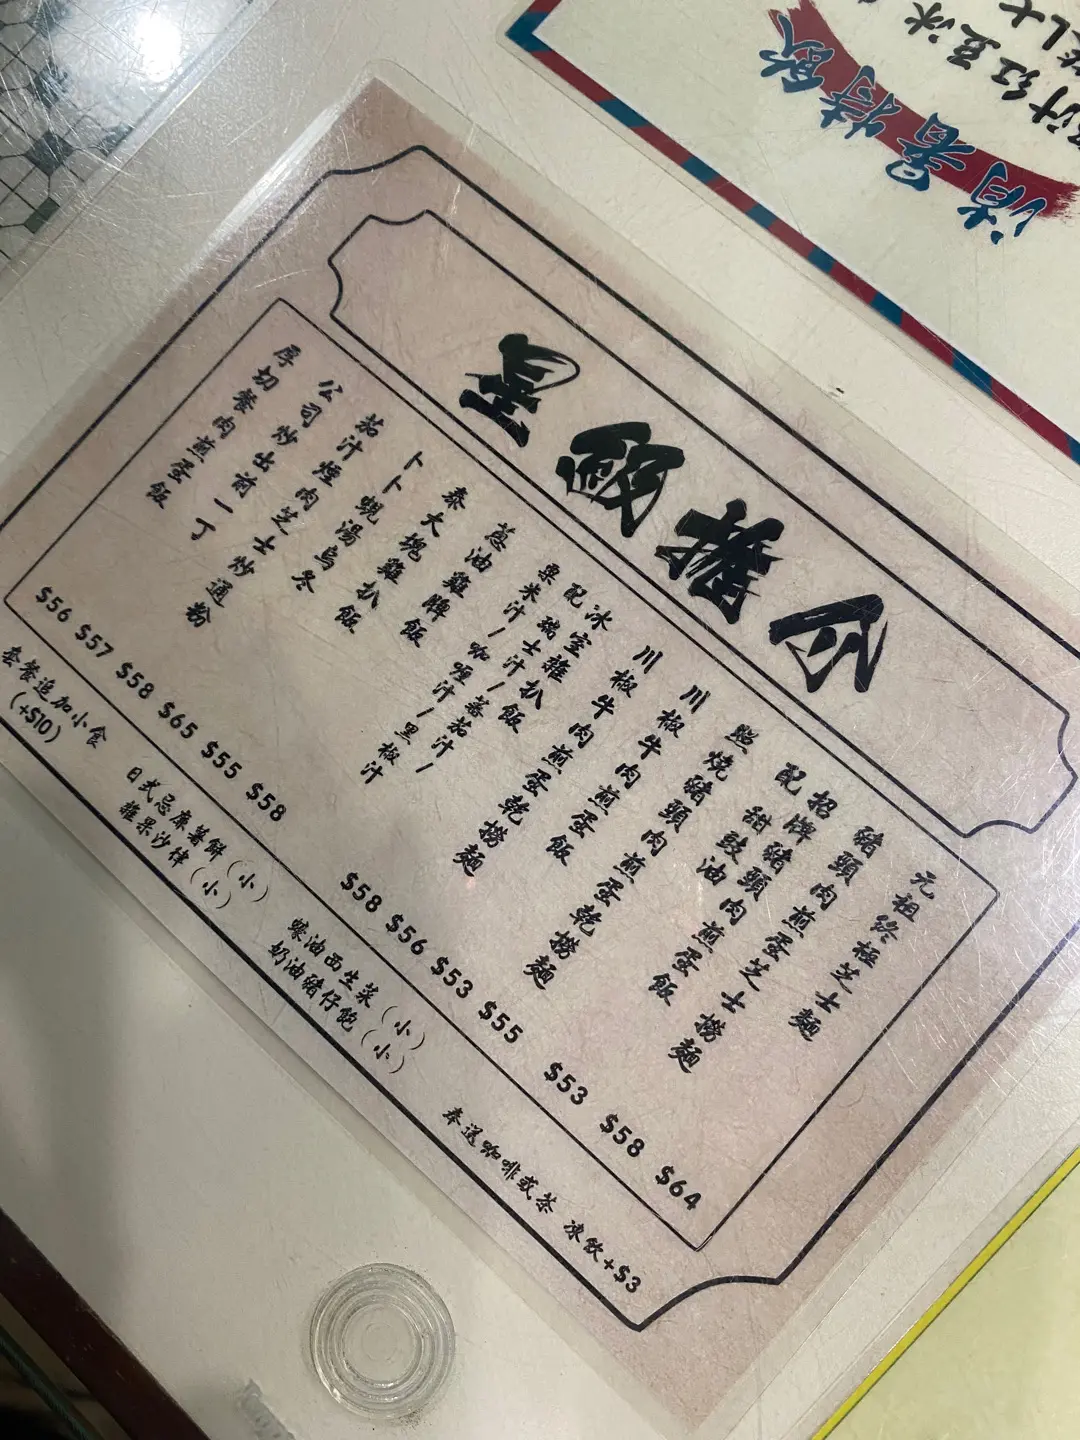 星級推介
元祖終極芝士麵 $64
豬頭肉煎蛋芝士撈麵 $58
招牌豬頭肉煎蛋飯
配甜豉油 $53
照燒豬頭肉煎蛋乾撈麵 $55
川椒牛肉煎蛋飯 $53
川椒牛肉煎蛋乾撈麵 $56
冰室雜扒飯
配瑞士汁/蕃茄汁/
粟米汁/咖喱汁/黑椒汁 $58
蔥油雞牌飯 $58
泰大塊雞扒飯 $55
卜卜蜆湯烏冬 $65
茄汁煙肉芝士炒通粉 $58
公司炒出前一丁 $57
厚切餐肉煎蛋飯 $56
套餐追加小食
(+$10)
日式忌廉薯餅(小)
雜果沙律(小)
蠔油西生菜(小)
奶油豬仔飽(小)
奉送咖啡或茶 凍飲+$3
消暑特飲
紅豆冰